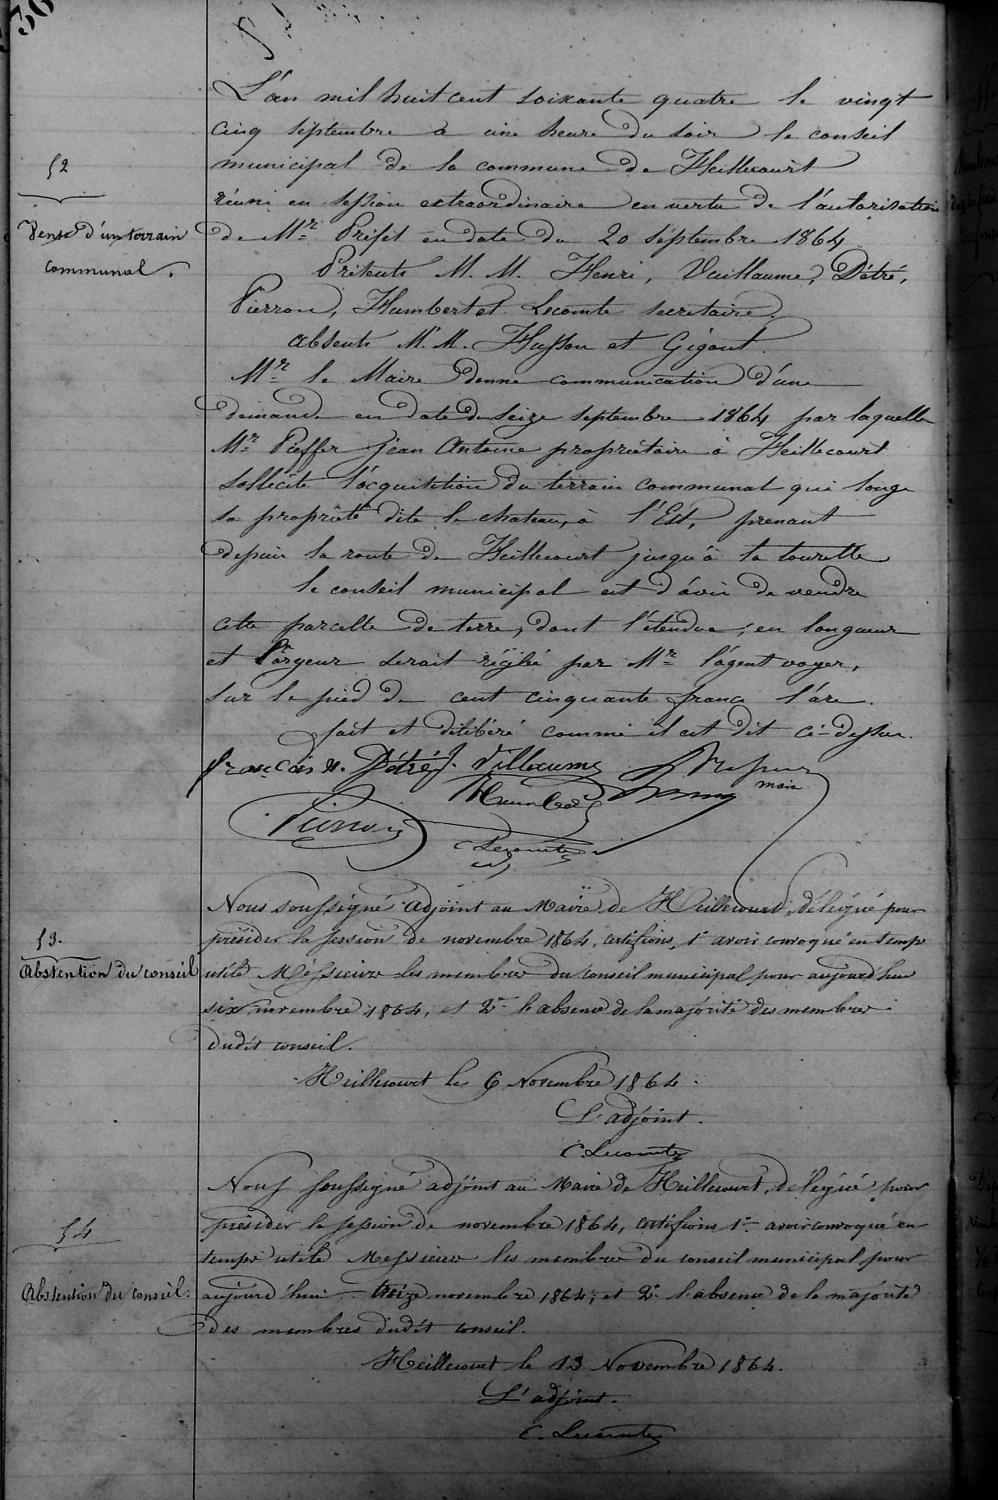 L'an mil huit cent soixante quatre le vingt
cinq septembre à une heure du soir le conseil
52
municipal de la commune de Heillecourt
réuni en session extraordinaire en vertu de l'autorisation
Vente d'un terrain
communal.
de Mr Préfet en date du 20 septembre 1864
Présents M. M. Henri, Vuillaume, Détré,
Pierron, Humbert et Lecomte secrétaire.
absents M. M. Husson et Gigout.
Mr le Maire donne communication d'une
demande en date du seize septembre 1864 par laquelle
Mr Pieffer Jean Antoine propriétaire à Heillecourt
sollicite l'acquisition du terrain communal qui longe
sa propriété dite le chateau, à l'Est, prenant
depuis la route de Heillecourt jusqu'à la tourelle
le conseil municipal est d'avis de vendre
cette parcelle de terre, dont l'étendue, en longueur
et largeur serait réglée par Mr l'agent voyer,
sur le pied de cent cinquante francs l'are.
fait et délibéré comme il est dit ci-dessus.
françois n. Détré J. Villaume
maire
Humbert
Pierron
Lecomte
Nous soussigné adjoint au Maire de Heillecourt, délégué pour
53.
présider la session de novembre 1864, certifions, 1° avoir convoqué en temps
Abstention du conseil
utile Messieurs les membres du conseil municipal pour aujourd'hui
six novembre 1864, et 2° l'absence de la majorité des membres
dudit conseil.
Heillecourt le 6 Novembre 1864.
L'adjoint.
C. Lecomte
Nous soussigné adjoint au Maire de Heillecourt, délégué pour
54
présider la session de novembre 1864, certifions 1° avoir convoqué en
temps utile Messieurs les membres du conseil municipal pour
Abstention du conseil.
aujourd'hui treize novembre 1864, et 2° l'absence de la majorité
des membres dudit conseil.
Heillecourt le 13 Novembre 1864.
L'adjoint.
C. Lecomte